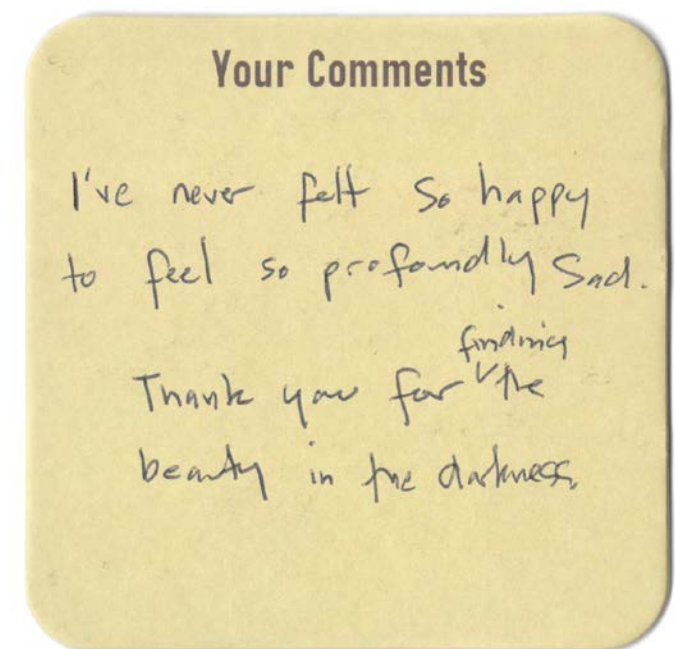 Your Comments
I've never felt so happy
to feel so profoundly sad.
finding
Thank you for the
beauty in the darkness.